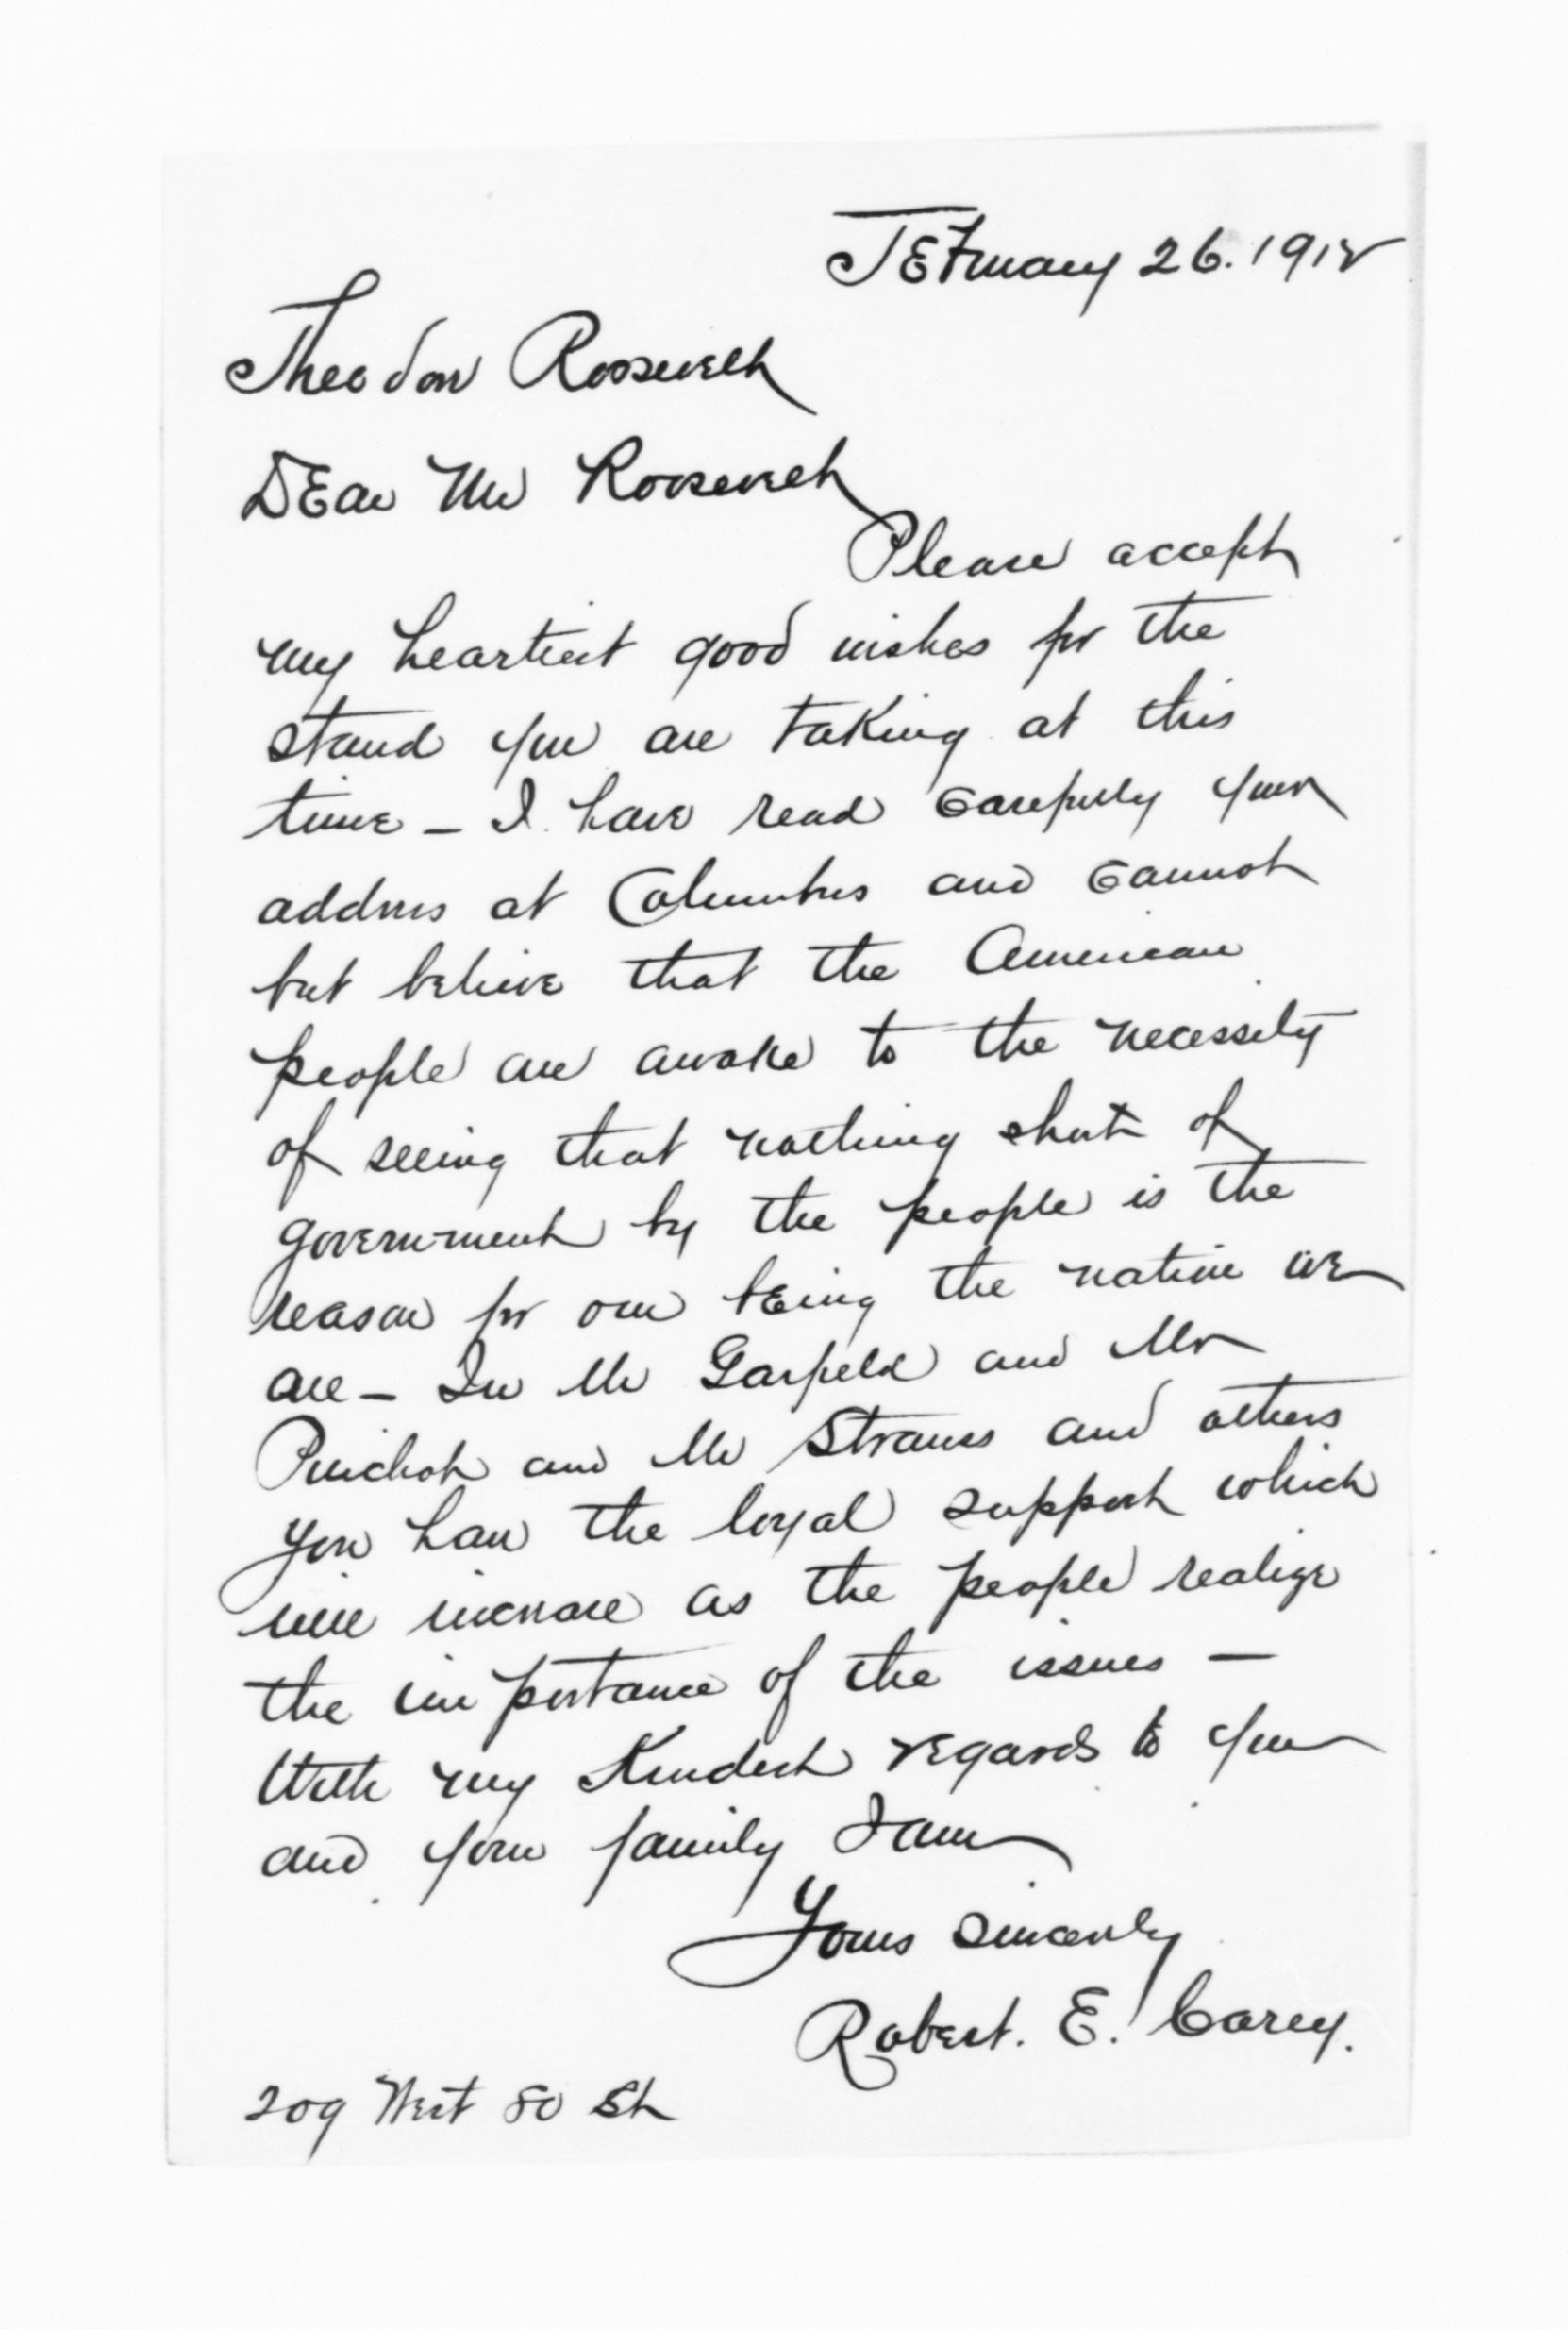 February 26. 1912
Theodore Roosevelt
Dear Mr Roosevelt
Please accept
my heartiest good wishes for the
stand you are taking at this
time – I have read carefully your
address at Columbus and cannot
but believe that the American
people are awake to the necessity
of seeing that nothing short of
government by the people is the
reason for our being the nation we
are – In Mr Garfield and Mr
Pinchot and Mr Strauss and others
you have the loyal support which
will increase as the people realize
the importance of the issues –
With my kindest regards to you
and your family I am
Yours sincerely
Robert. E. Carey.
209 West 80 St